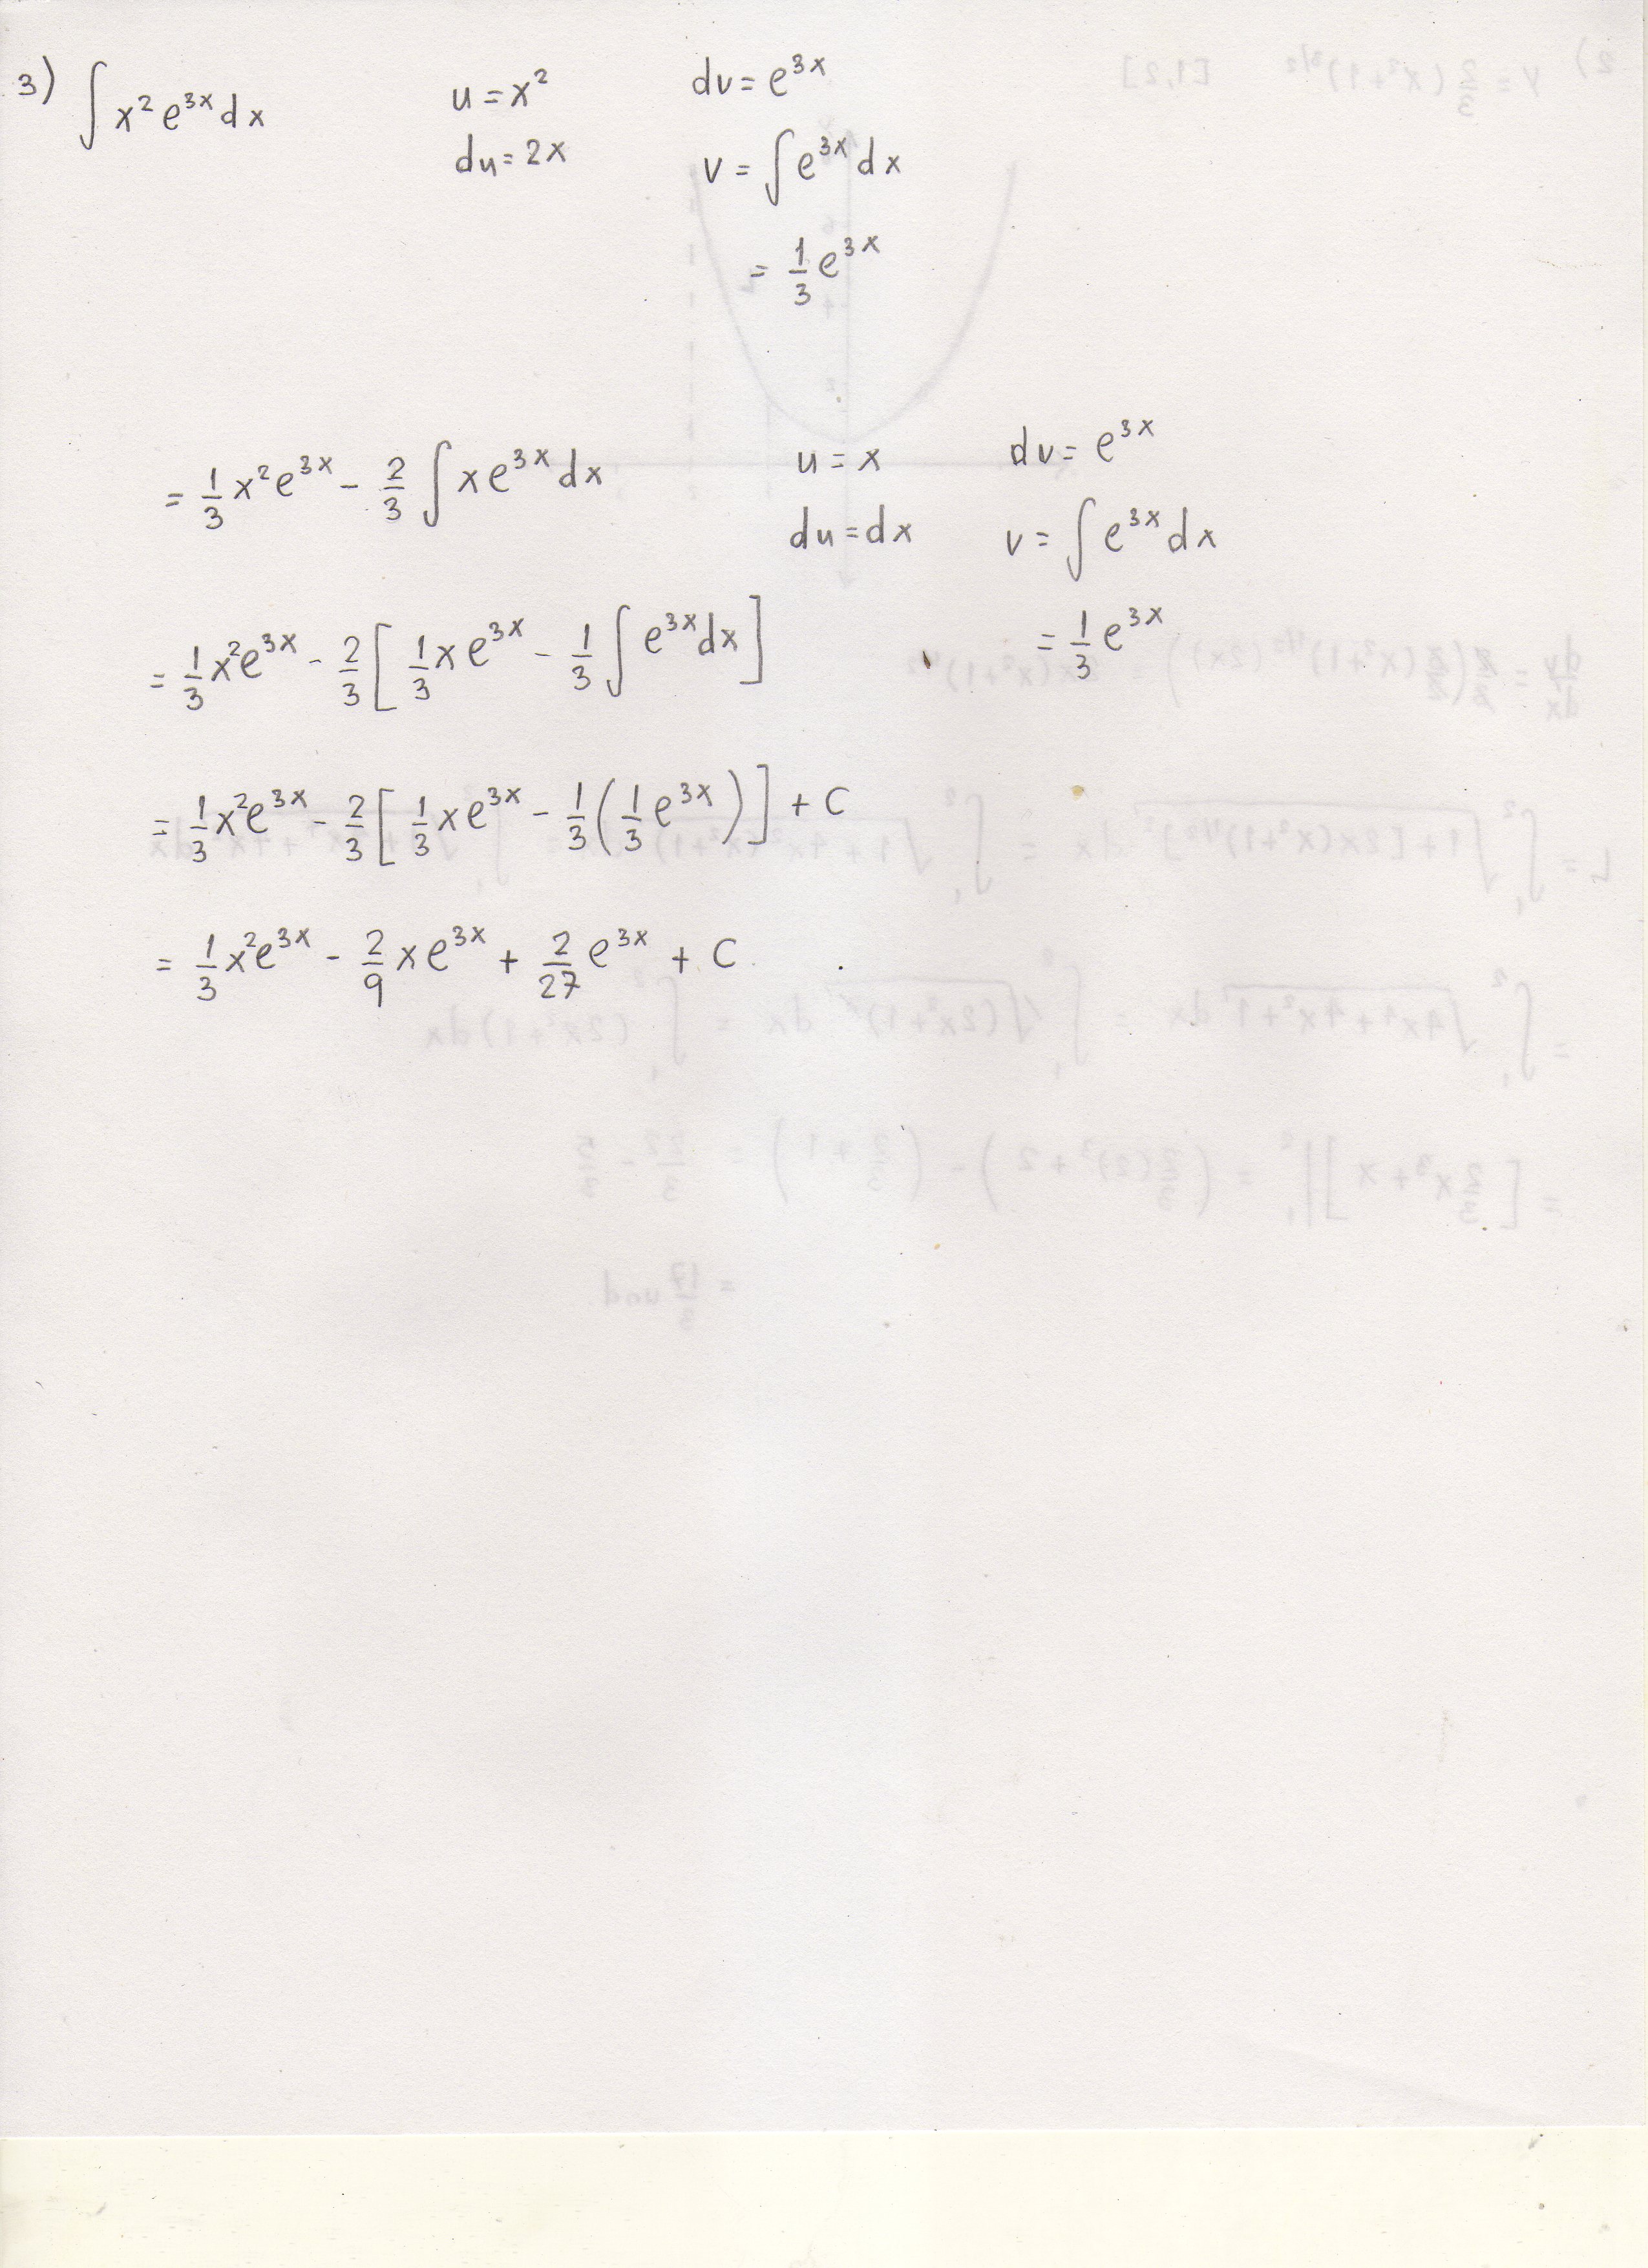 3) ∫ x² e^{3x} dx    u = x²    dv = e^{3x}
du = 2x    v = ∫ e^{3x} dx
= 1/3 e^{3x}
= 1/3 x² e^{3x} - 2/3 ∫ x e^{3x} dx    u = x    dv = e^{3x}
du = dx    v = ∫ e^{3x} dx
= 1/3 x² e^{3x} - 2/3 [ 1/3 x e^{3x} - 1/3 ∫ e^{3x} dx ]    = 1/3 e^{3x}
= 1/3 x² e^{3x} - 2/3 [ 1/3 x e^{3x} - 1/3 ( 1/3 e^{3x} ) ] + C
= 1/3 x² e^{3x} - 2/9 x e^{3x} + 2/27 e^{3x} + C